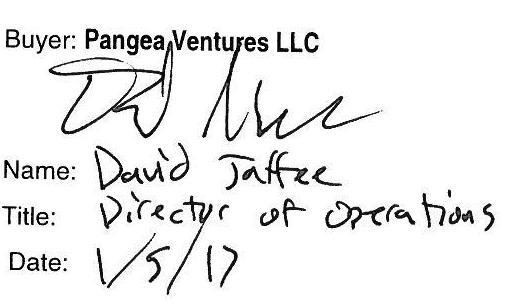 Buyer: Pangea Ventures LLC
Name: David Jaffee
Title: Director of Operations
Date: 1/5/17